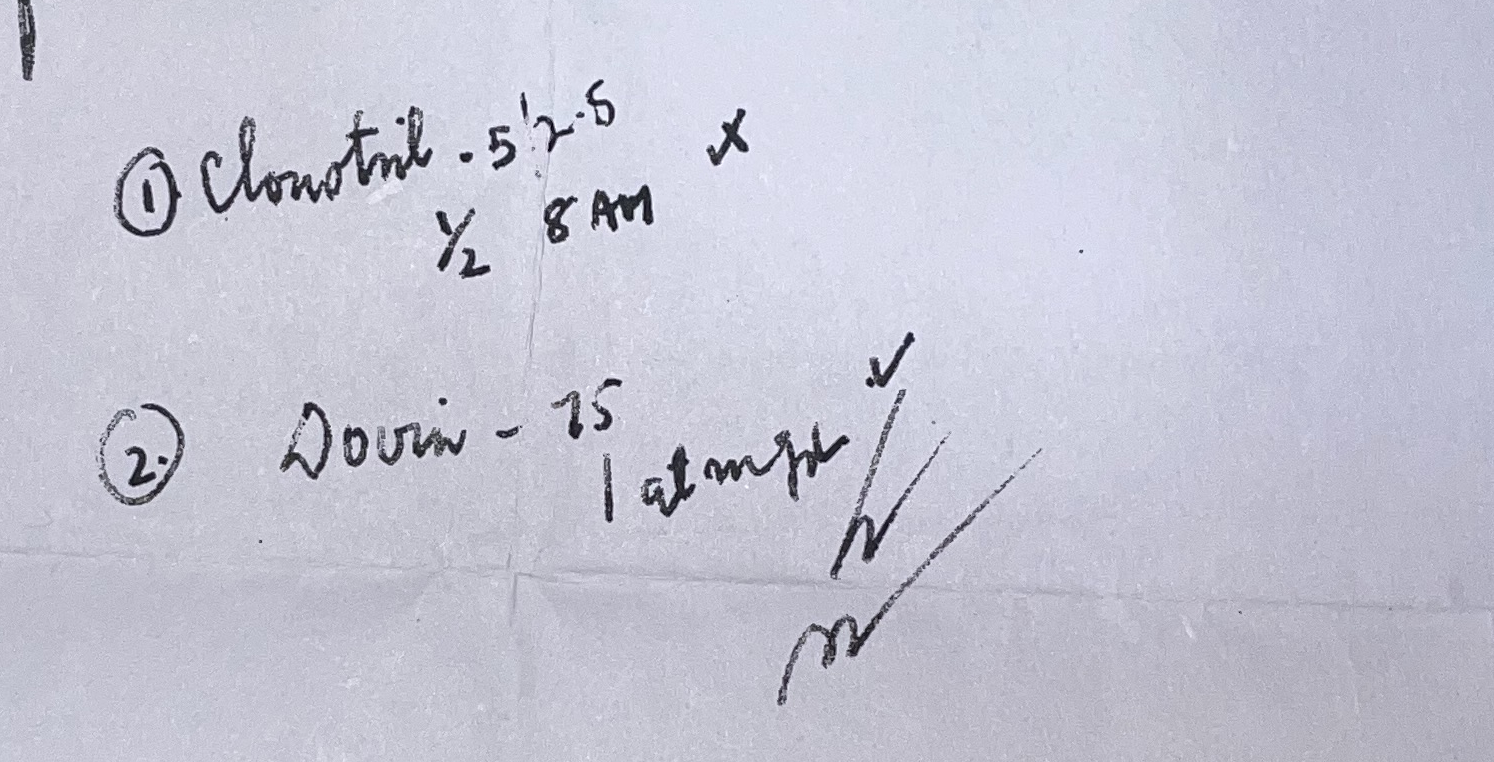 ① Clonotril .5
½ 8 AM x
②. Dovin - 75
1 at night ✓